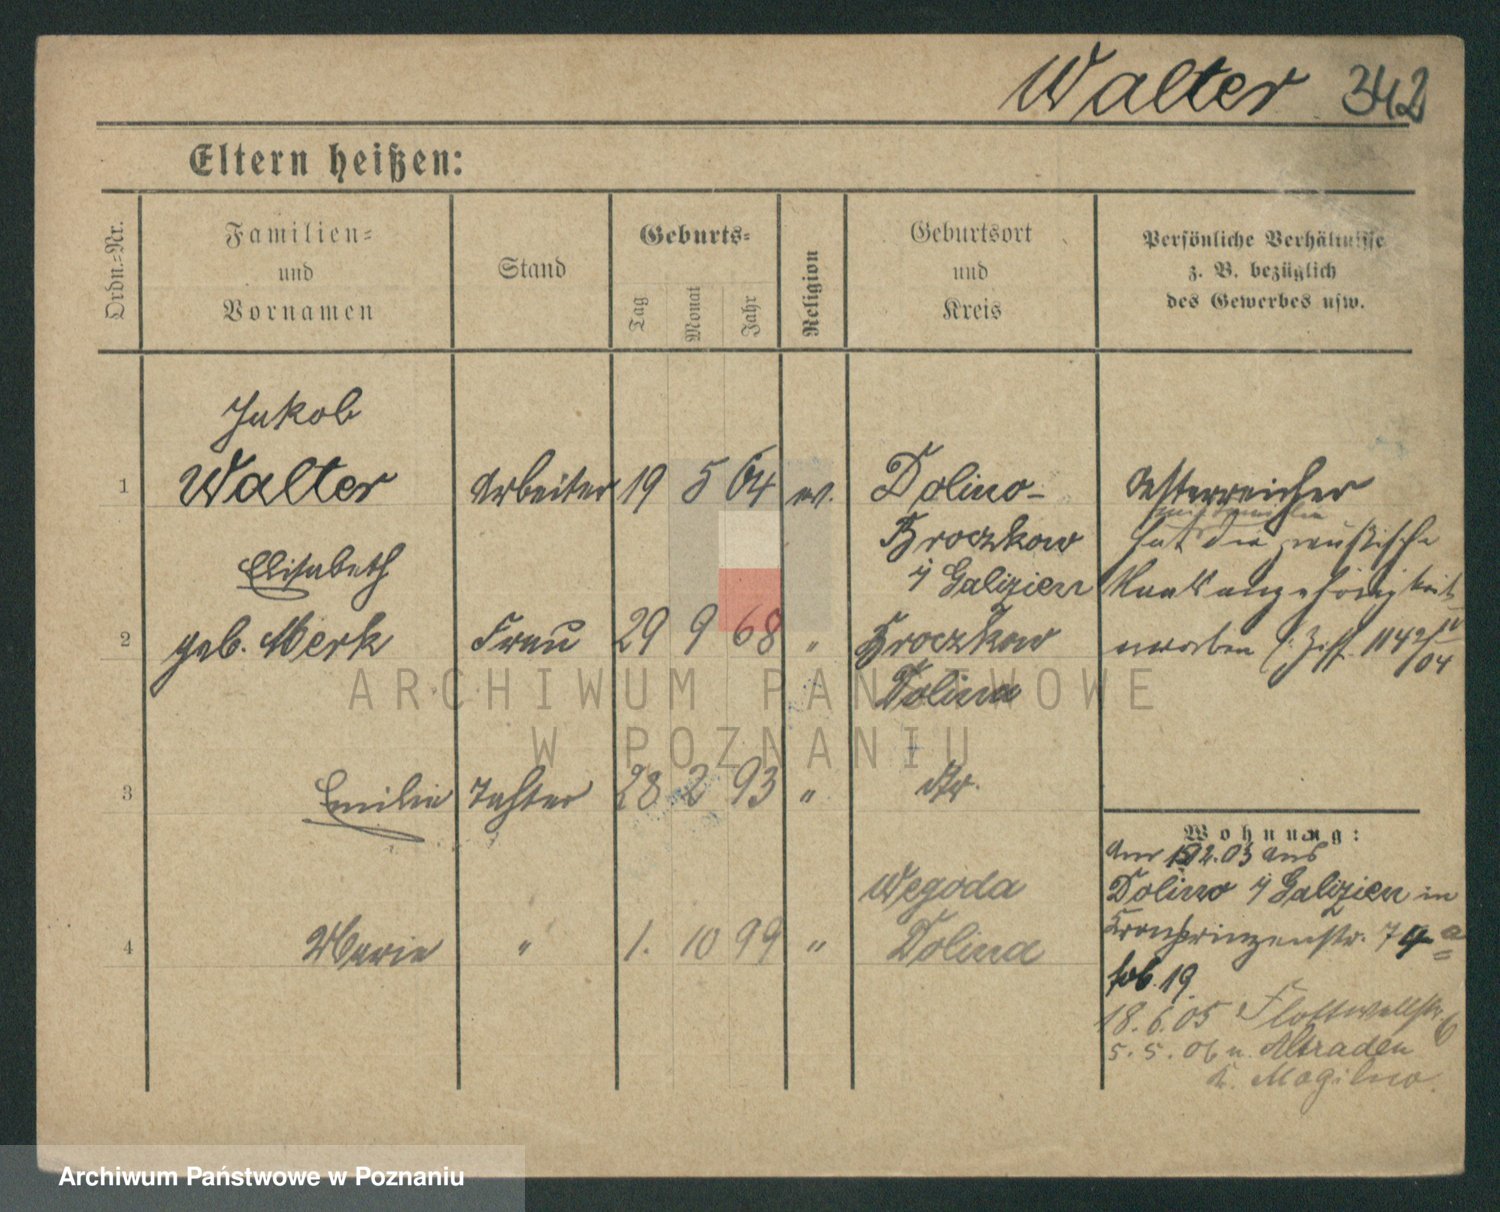 Walter 342
Eltern heißen:
Ordn.=Nr.
Familien=
und
Vornamen
Stand
Geburts=
Tag
Monat
Jahr
Religion
Geburtsort
und
Kreis
Persönliche Verhältnisse
z. B. bezüglich
des Gewerbes usw.
Jakob
1 Walter Arbeiter 19 5 64 ev. Dolino-
Broczkow
i/ Galizien
Österreicher
mit Familie
hat die preußische
Staatsangehörigkeit
erworben
Elisabeth
2 geb. Merk Frau 29 9 68 " Broczkow
Dolina
3 Emilie Tochter 28 2 93 " dto.
4 Marie " 1. 10 99 " Wegoda
Dolina
Wohnung:
aus
Dolino i/ Galizien in
Kronprinzenstr. 74a
18.6.05 Flottwellstr. 6
5.5.06 n. Altraden
K. Mogilno.
ARCHIWUM PAŃSTWOWE
W POZNANIU
Archiwum Państwowe w Poznaniu